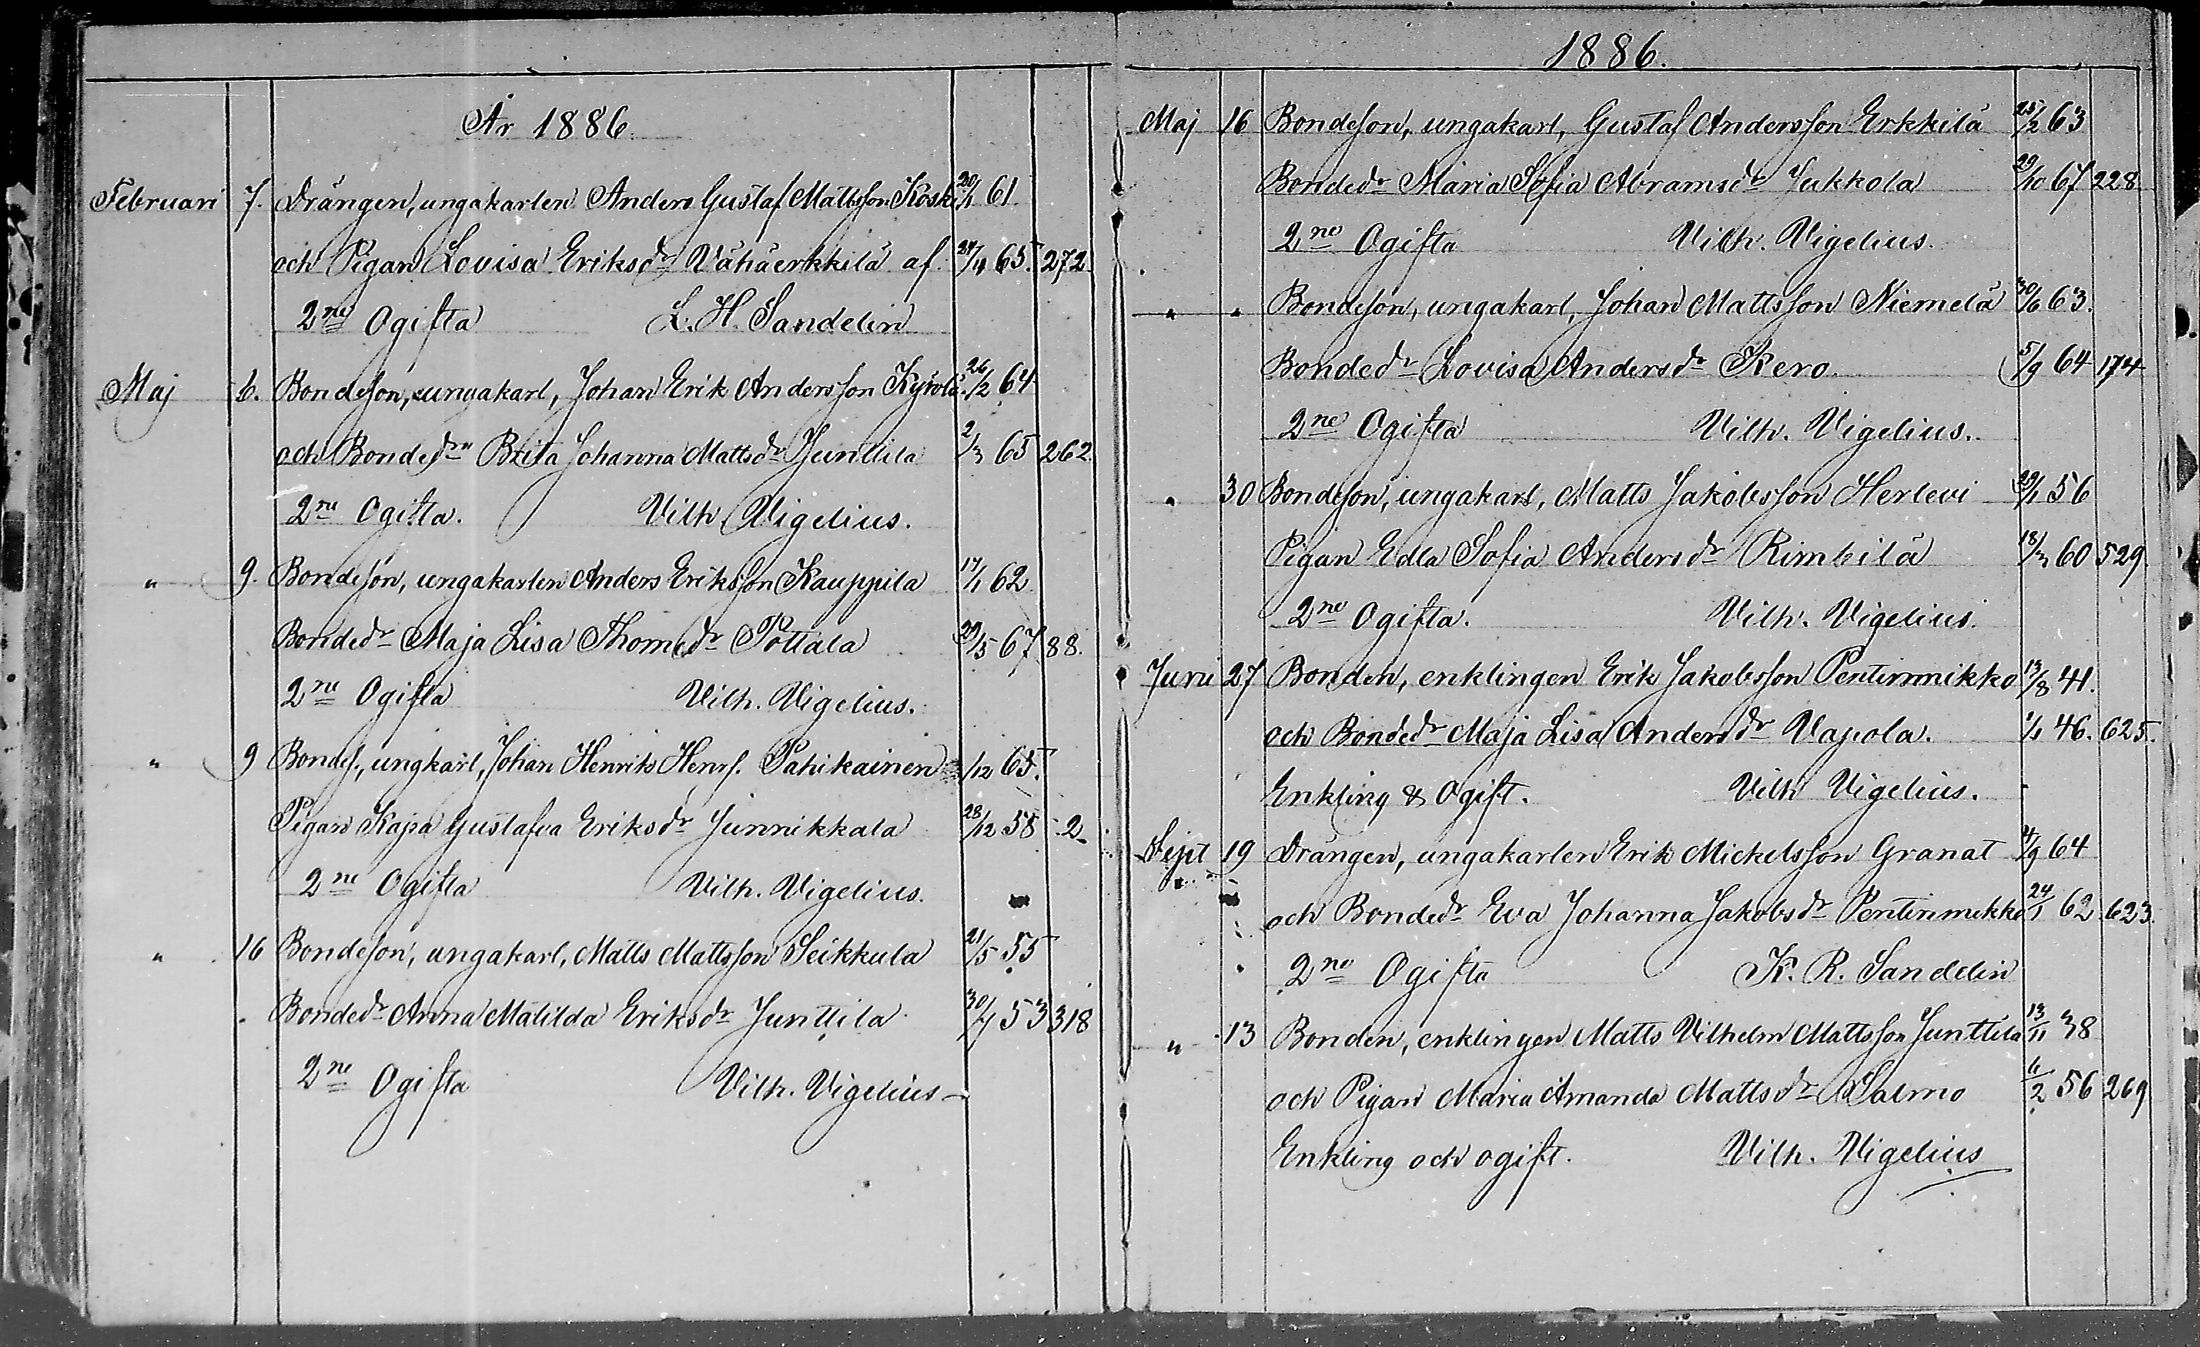 År 1886.
Februari 7. Drängen, ungakarlen Anders Gustaf Mattsson Koski 20/1 61.
och Pigan Lovisa Eriksdr Vähäerkkilä af. 24/4 65. 272.
2ne Ogifta L. H. Sandelin
Maj 6. Bondeson, ungakarl, Johan Erik Andersson Kyrölä. 26/2 64
och Bondedrn Brita Johanna Mattsdr Junttila 2/3 65 262.
2ne Ogifta. Vilh. Vigelius.
" 9. Bondeson, ungakarlen Anders Eriksson Kauppila 17/1 62.
Bondedr Maja Lisa Thomsdr Pottala 29/5 67 88.
2ne Ogifta Vilh. Vigelius.
" 9 Bondes., ungkarl, Johan Henrik Henrs. Pahikainen /12 65.
Pigan Kajsa Gustafva Eriksdr Junnikkala 28/12 58 2
2ne Ogifta Vilh. Vigelius.
" 16 Bondeson, ungakarl, Matts Mattsson Seikkula 21/5 55
Bondedr Anna Matilda Eriksdr Junttila 30/7 53 318
2ne Ogifta Vilh. Vigelius
1886.
Maj 16 Bondeson, ungakarl, Gustaf Andersson Erkkilä 25/2 63
Bondedr Maria Sofia Abramsdr Jukkola 29/10 67 228
2ne Ogifta Vilh. Vigelius.
" " Bondeson, ungakarl, Johan Mattsson Niemelä 63.
Bondedr Lovisa Andersdr Kero. 5/9 64 174
2ne Ogifta Vilh. Vigelius.
" 30 Bondeson, ungakarl, Matts Jakobsson Herlevi 29/1 56
Pigan Edla Sofia Andersdr Rimpilä 18/3 60 529.
2ne Ogifta. Vilh. Vigelius.
Juni 27 Bonden, enklingen Erik Jakobsson Pentinmikko 13/8 41.
och Bondedr Maja Lisa Andersdr Vapola. 1/1 46. 625.
Enkling & Ogift. Vilh Vigelius.
Sept 19 Drängen, ungakarlen Erik Mickelsson Granat 4/9 64
och Bondedr Eva Johanna Jakobsdr Pentinmikko 24/1 62 623.
2ne Ogifta K. R. Sandelin
" 13 Bonden, enklingen Matts Vilhelm Mattsson Junttila 13/11 38
och Pigan Maria Amanda Mattsdr Salmo 11/2 56 269
Enkling och ogift. Vilh. Vigelius